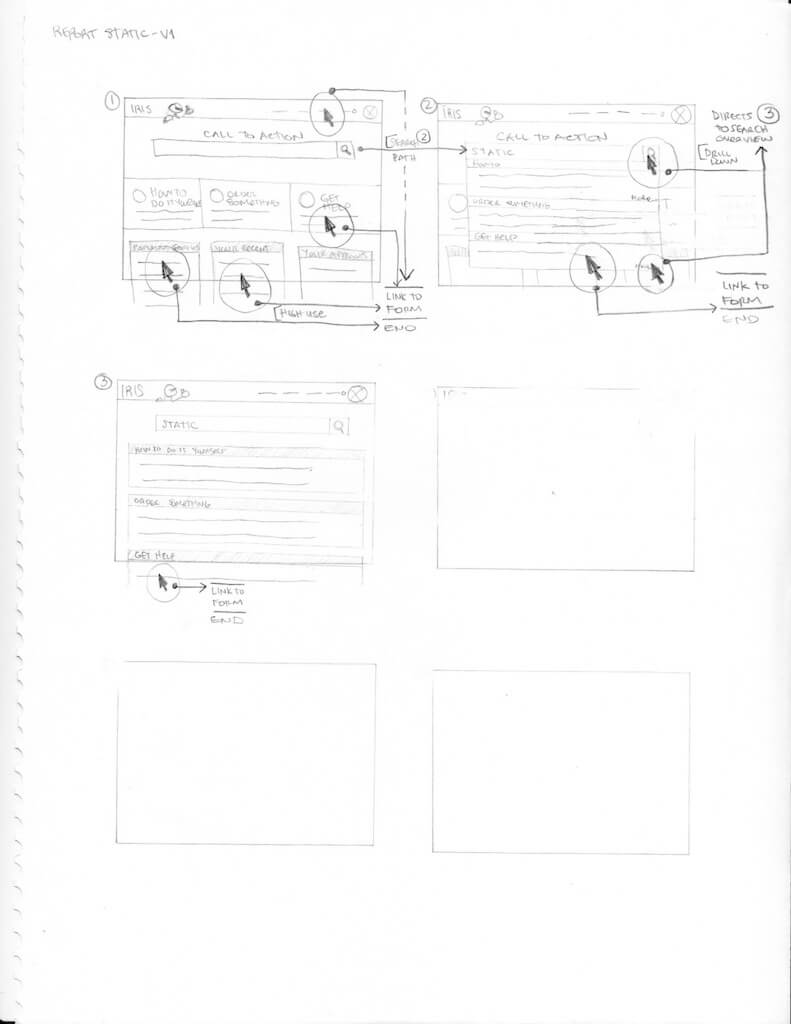 REPORT STATIC-V1
1
IRIS
CALL TO ACTION
HOW TO
DO IT YOURSELF
ORDER
SOMETHING
GET
HELP
YOUR RECENT
YOUR APPROVALS
HIGH USE
SEARCH 2
PATH
LINK TO
FORM
END
2
IRIS
CALL TO ACTION
STATIC
HOW TO
ORDER SOMETHING
MORE
GET HELP
DRILL
DOWN
DIRECTS 3
TO SEARCH
OVERVIEW
LINK TO
FORM
END
3
IRIS
STATIC
HOW TO DO IT YOURSELF
ORDER SOMETHING
GET HELP
LINK TO
FORM
END